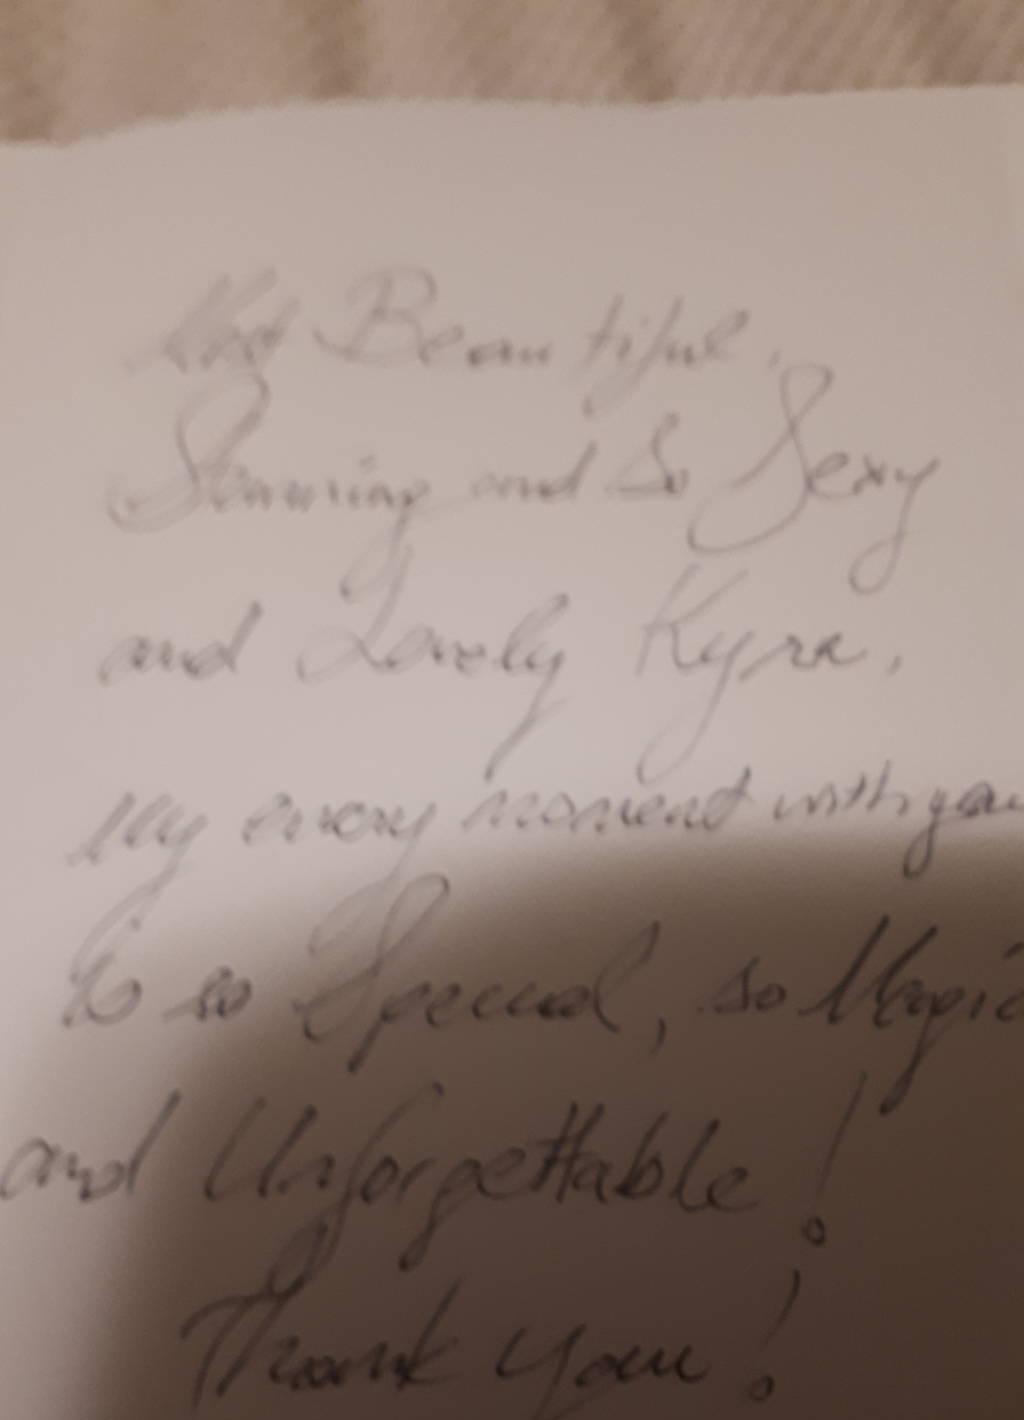 Most Beautiful,
Stunning and So Sexy
and Lovely Kyra,
My every moment with you
is so Special, so Magic
and Unforgettable!
Thank You!